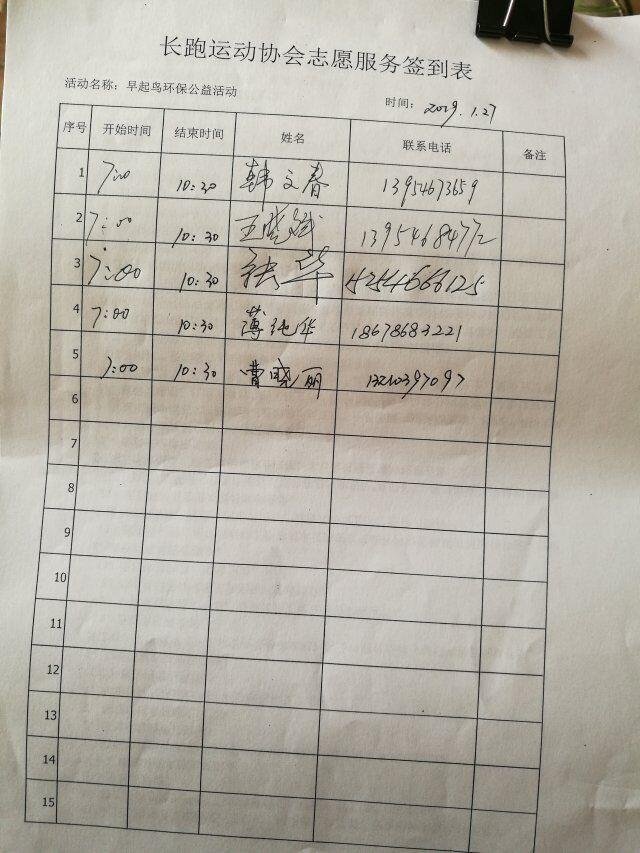 长跑运动协会志愿服务签到表
活动名称：早起鸟环保公益活动 时间：2019.1.27
序号 开始时间 结束时间 姓名 联系电话 备注
1 7:00 10:30 韩文春 13954673659
2 7:00 10:30 王晓斌 13954684772
3 7:00 10:30 张华 15254666125
4 7:00 10:30 薄纯华 18678683221
5 7:00 10:30 曹晓丽 13210397097
6
7
8
9
10
11
12
13
14
15